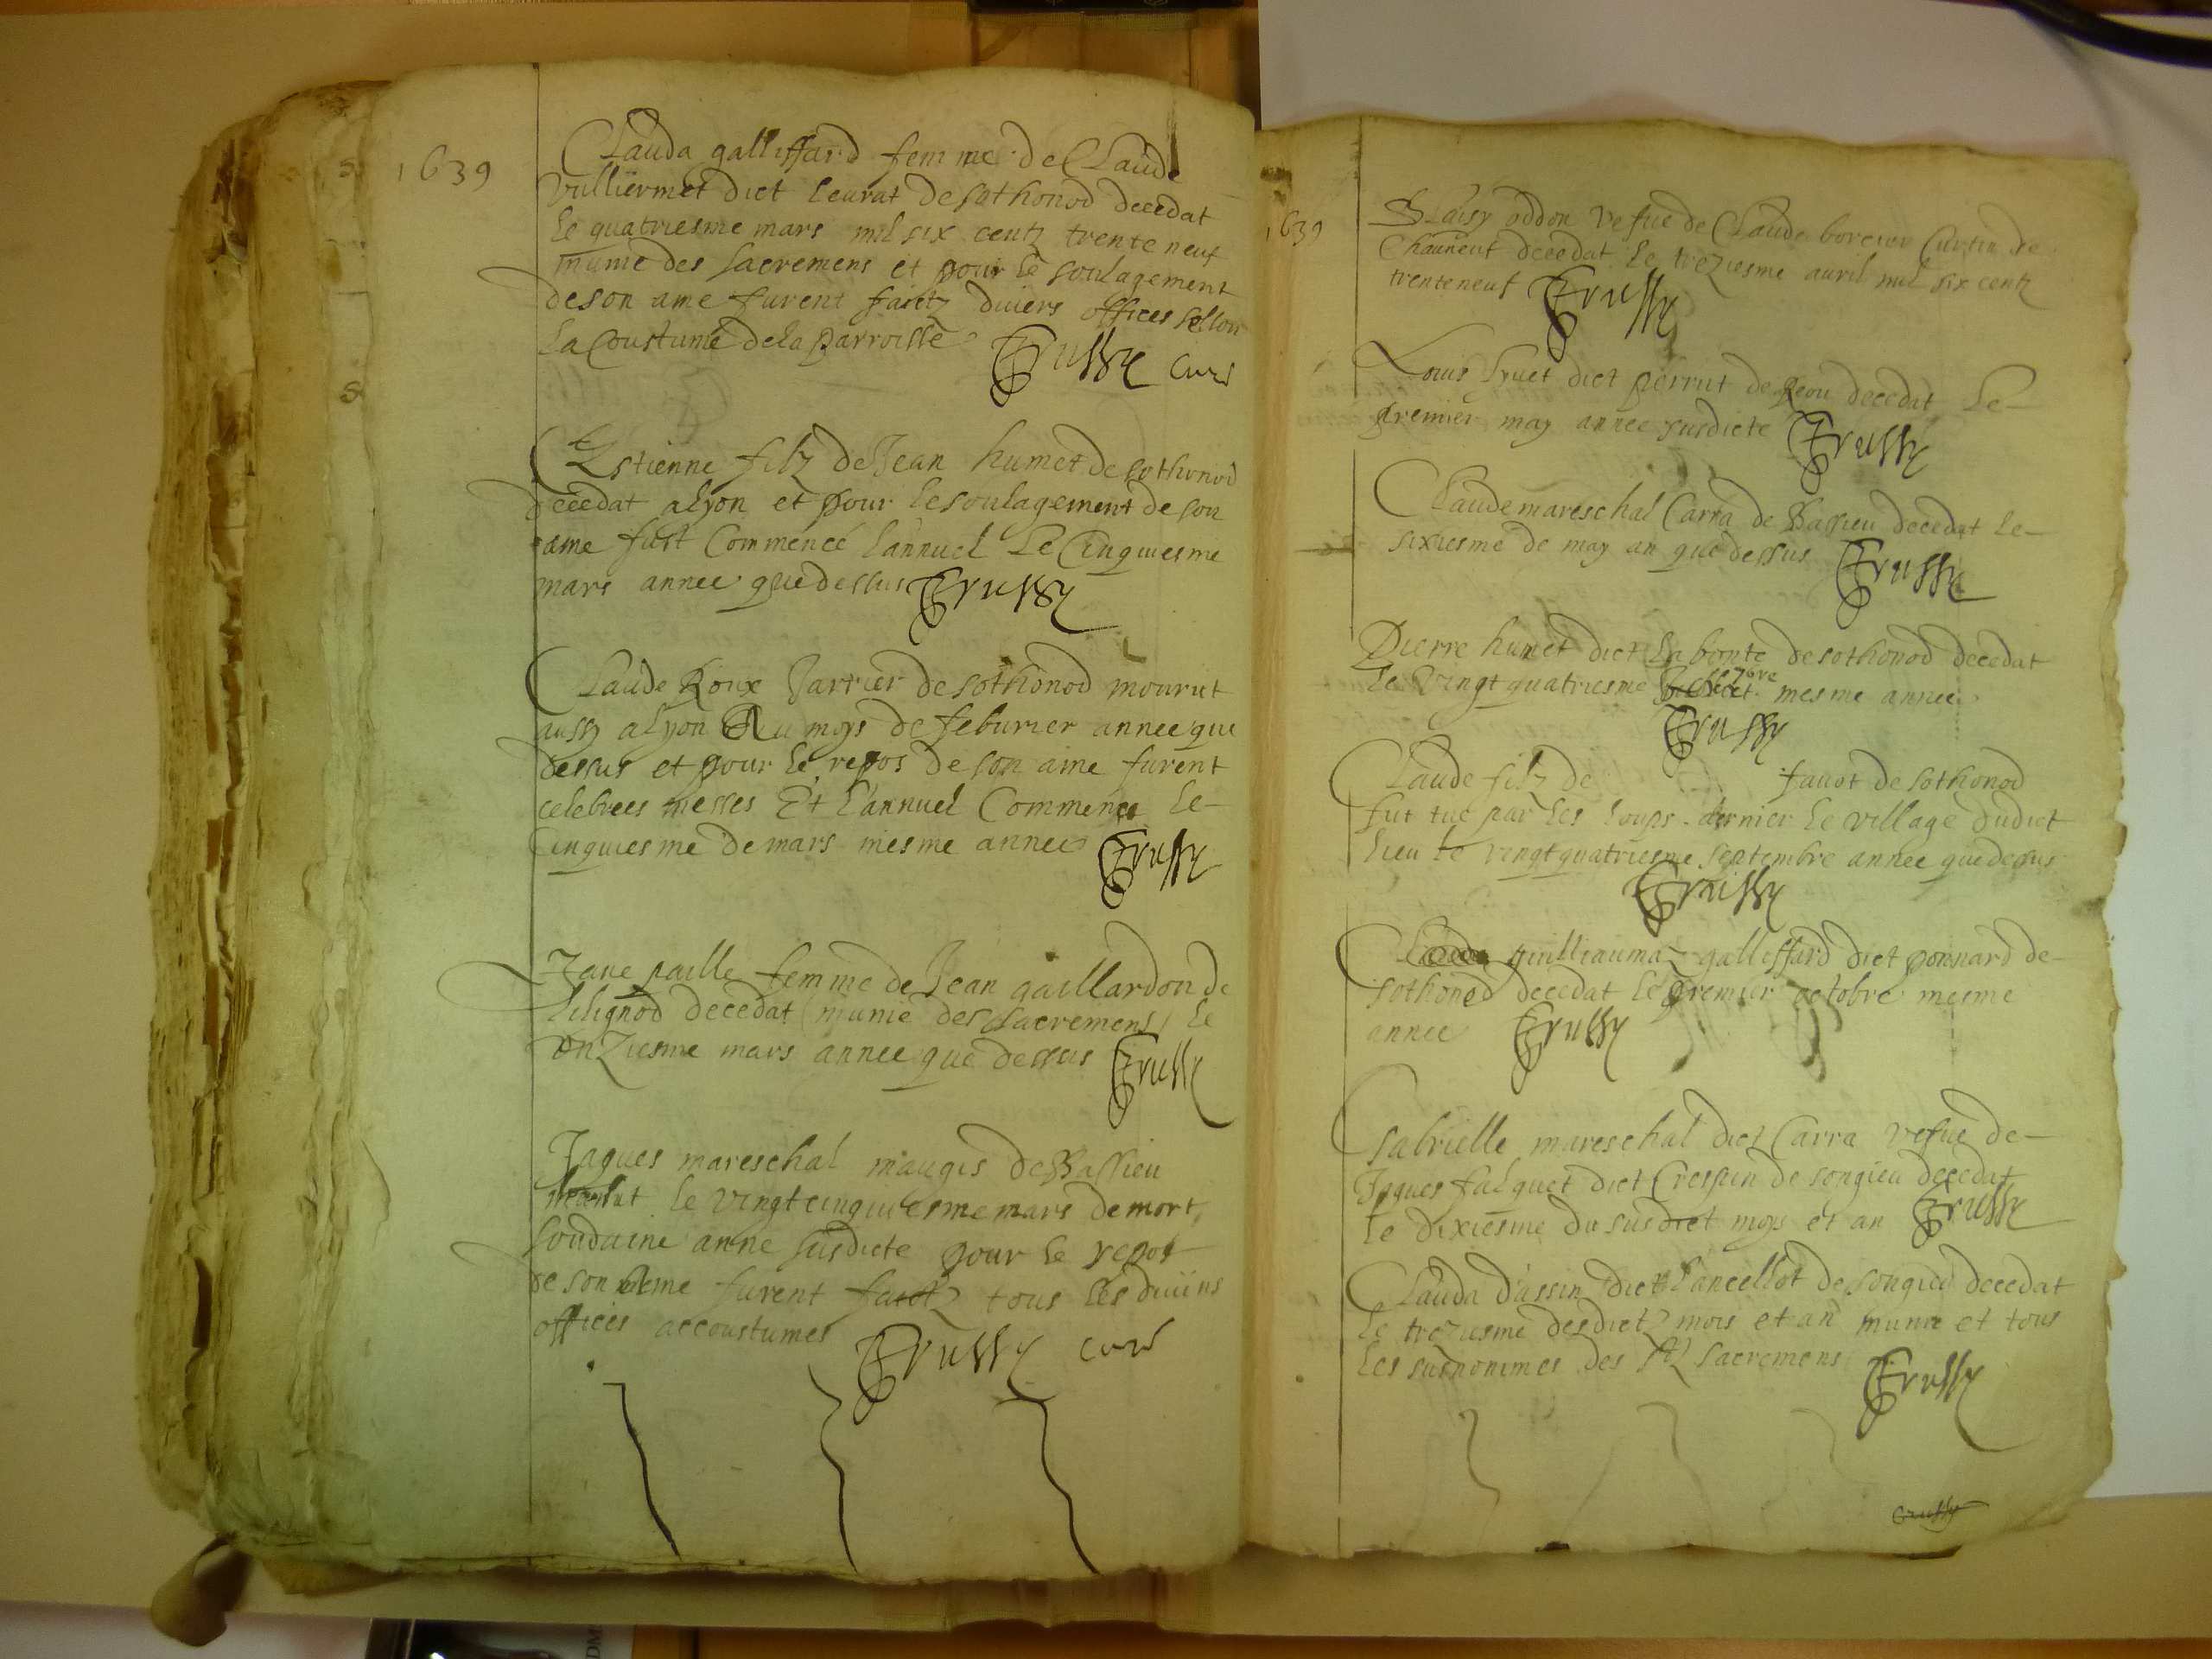 1639
Clauda galliffard femme de Claude
Vulliermet dict leurat de sothonod decedat
le quatriesme mars mil six centz trente neuf
munie des sacremens et pour le soulagement
de son ame furent faictz divers offices sellon
la coustume de la parroisse Trussy curé
Estienne filz de Jean humet de sothonod
decedat a lyon et pour le soulagement de son
ame fust commencé l'annuel le cinquiesme
mars annee que dessus Trussy
Claude Roux Jartrier de sothonod mourut
aussy a lyon Au moys de feburier annee que
dessus et pour le repos de son ame furent
celebrees messes Et l'annuel commencé le
cinquiesme de mars mesme annee Trussy
Jane paille femme de Jean gaillardon de
lilignod decedat munie des sacremens le
onziesme mars annee que dessus Trussy
Jaques mareschal maugis de Bassieu
mourut le vingt cinquiesme mars de mort
soudaine anne susdicte pour le repos
de son ame furent faictz tous les divins
offices accoustumes Trussy curé
1639
Blaisy oddon vefue de Claude curtin de
Chauneuf decedat le treziesme auril mil six centz
trente neuf Trussy
Louis huet dict perrut de decedat le
premier may annee susdicte Trussy
Claude mareschal Carra de Bassieu decedat le
sixiesme de may an que dessus Trussy
Pierre humet dict la bonte de sothonod decedat
le vingt quatriesme 7bre mesme annee
Trussy
Claude filz de fauot de sothonod
fut tué par les loups dernier le village dudict
lieu le vingt quatriesme septembre annee que dessus
Trussy
guilliauma galliffard dict ponnard de
sothonod decedat le premier octobre mesme
annee Trussy
Gabrielle mareschal dict Carra vefue de
Jaques falquet dict Crespin de songieu decedat
le dixiesme du susdict moys et an Trussy
Clauda d'assin dict lancellot de songieu decedat
le treziesme desdictz mois et an munie et tous
les surnommes des stz sacremens Trussy
Trussy